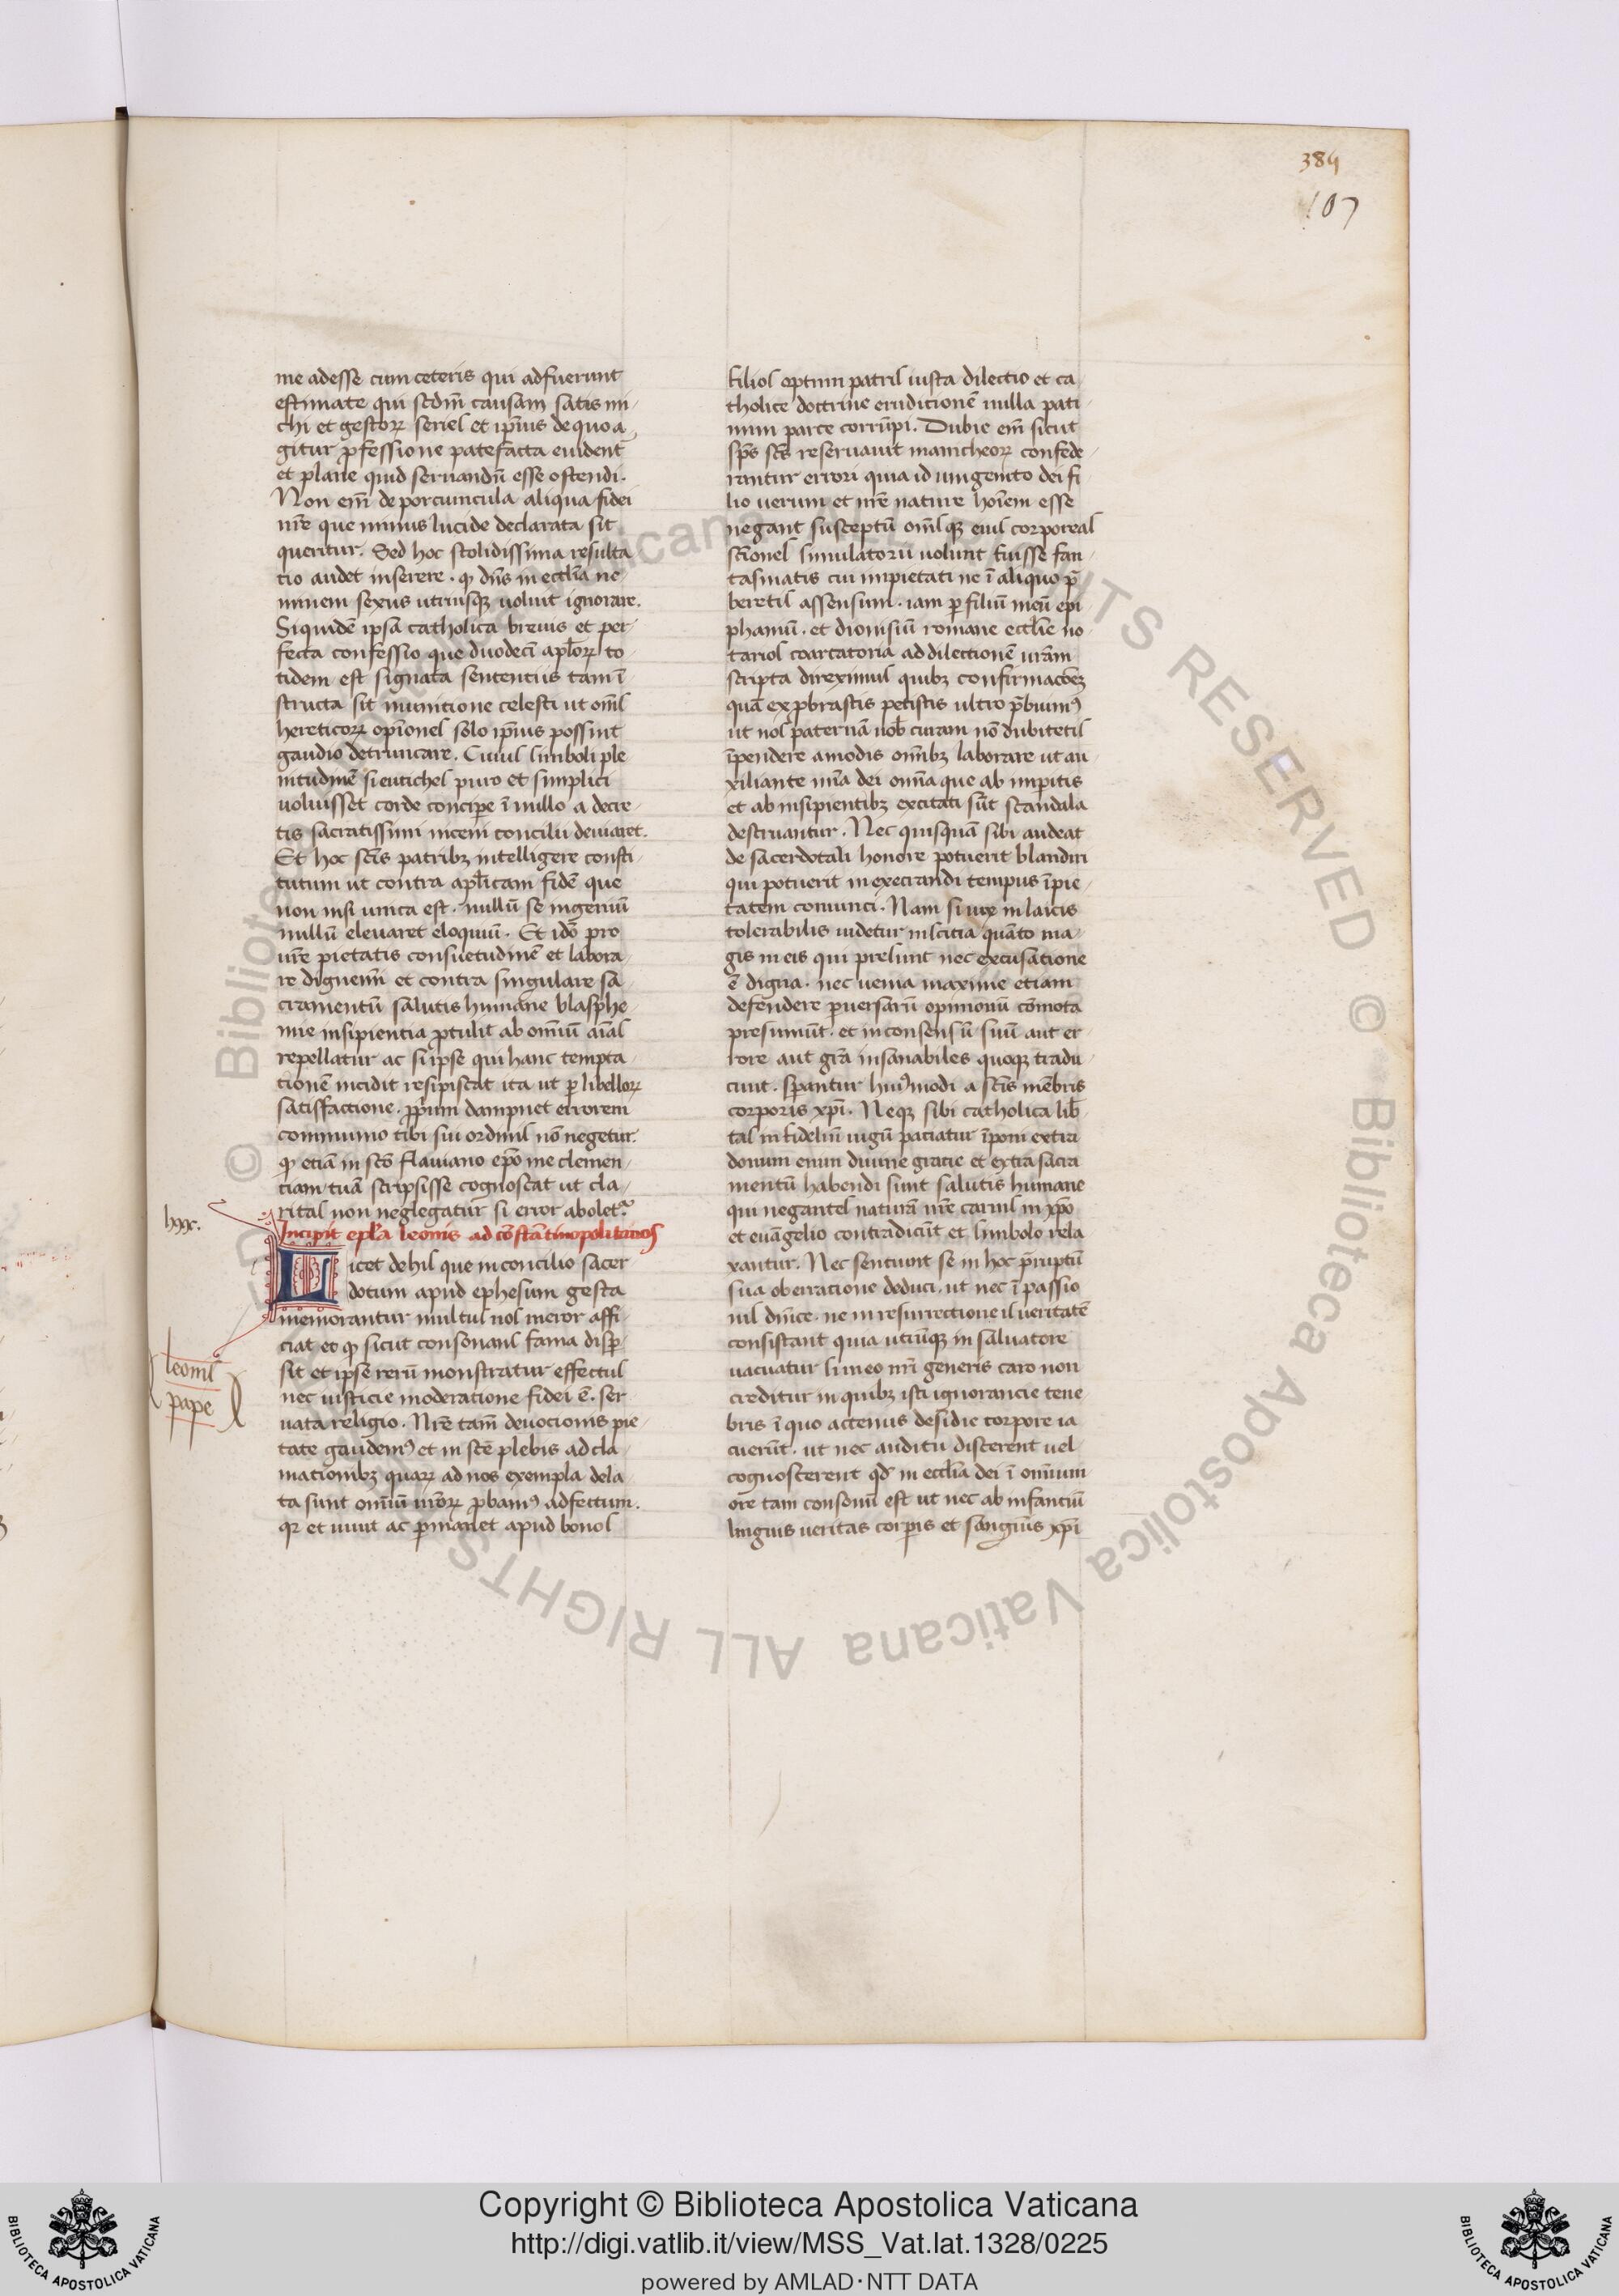 384
107
me adesse cum ceteris qui adfuerunt
estimate qui scdm̄ causam satis mi-
chi et gestoꝝ series et ipīus de quo a-
gitur ꝓfessione patefacta euident̄
et plane quid seruandū esse ostendi.
Non em̄ de porciuncula aliqua fidei
nr̄e que minus lucide declarata sit
queritur. Sed hoc stolidissima resulta
tio audet inserere. ꝙ dn̄s in eccl̄ia ne
minem sexus utriusqꝫ uoluit ignorare.
Siquidē ipsa catholica breuis et per-
fecta confessio que duodecī apl̄oꝝ to-
tidem est signata sententiis tam ī
structa sit munitione celesti ut om̄s
hereticoꝝ opīones solo ipīus possint
gaudio detruncare. Cuius simboli ple
nitudinē si eutiches puro et simplici
uoluisset corde concipe ī nullo a decre-
tis sacratissimi niceni concilii deuiaret.
Et hoc scīs patribꝫ intelligere consti-
tutum ut contra apl̄icam fidē que
non nisi unica est. nullū se ingeniū
nullū eleuaret eloquiū. Et idō pro
ur̄e pietatis consuetudinē et labora-
re dignemī et contra singulare sa-
cramentū salutis humane blasphe-
mie insipientia ꝓtulit ab omniū aīas
repellatur ac si ipse qui hanc tempta-
tionē incidit resipiscat ita ut ꝑ libelloꝝ
satisfactione. ꝓprium dampnet errorem
communio tibi sui ordinis nō negetur.
ꝙ etiā in scō flauiano ep̄o me clemen-
ciam tuā scripsisse cognoscat ut cla-
ritas non neglegatur si error abolet᷑.
lxxx.
Incipit epl̄a leonis ad cōstātinopolitanos
Licet de his que in concilio sacer
dotum apud ephesum gesta
memorantur multus nos meror affi-
ciat et ꝙ sicut consonans fama disꝑ
sit et ipse rerū monstratur effectus
nec iusticie moderatione fidei ē. ser-
uata religio. Nr̄e tam̄ deuocionis pie-
tate gaudemꝰ et in scē plebis ad cla-
mationibꝫ quaꝝ ad nos exempla dela-
ta sunt omniū ur̄oꝝ ꝓbamꝰ adfectum.
qꝛ et uiuit ac ꝑmanet apud bonos
leonis
pape
filios optimi patris iusta dilectio et ca-
tholice doctrine eruditionē nulla pati-
mini parte corrūpi. Dubie em̄ sicut
sp̄s scs̄ reseruauit manicheoꝝ confede-
rantur errori quia id unigenito dei fi
lio uerum et nr̄e nature hoīem esse
negant susceptū om̄s qꝫ eius corporeas
scīones simulatoru uolunt fuisse fan-
tasmatis cui impietati ne ī aliquo p̄
beretis assensum. iam ꝑ filiū meū epi
phaniū. et dionisiū romane eccl̄ie no
tarios coartatoria ad dilectionē ur̄am
scripta direximus quibꝫ confirmacōeꝫ
quā exꝓbrastis petistis ultro p̄buimꝰ
ut nos paternā uob̄ curam nō dubitetis
īpendere a modis omībꝫ laborare ut au
xiliante mīa dei omīa que ab imperitis
et ab insipientibꝫ excitati sūt scandala
destruantur. Nec quisquā sibi audeat
de sacerdotali honore potuerit blandiri
qui potuerit in execrandi tempus īpie-
tatem conuinci. Nam si uix in laicis
tolerabilis uidetur inscitia quāto ma-
gis in eis qui presunt nec excusatione
ē digna. nec uenia maxime etiam
defendere ꝑuersarū opinionū cōmota
presumūt. et in consensū suū aut er-
rore aut gr̄a insanabiles quoqꝫ tradu-
cunt. Sꝑantur huꝰmodi a scīs mēbris
corporis xp̄i. Neqꝫ sibi catholica lib̄
tas infidelū iugū paciatur īponi extra
donum enim diuine gracie et extra sacra
mentū habendi sunt salutis humane
qui negantes naturā nr̄e carnis in xp̄o
et euāgelio contradicūt et simbolo rela
xantur. Nec sentiunt se in hoc p̄ruptū
sua oberratione deduci. ut nec ī passio
nis dn̄ice. ne in resurrectione is ueritatē
consistant quia utrūqꝫ in saluatore
uacuatur si in eo nr̄i generis caro non
creditur in quibꝫ isti ignorancie tene
bris ī quo actenus desidie torpore ia
cuerūt. ut nec auditu discerent uel
cognoscerent qd̄ in eccl̄ia dei ī omnium
ore tam consonū est ut nec ab infantiū
linguis ueritas corꝑis et sanguīs xp̄i
Copyright © Biblioteca Apostolica Vaticana
http://digi.vatlib.it/view/MSS_Vat.lat.1328/0225
powered by AMLAD·NTT DATA